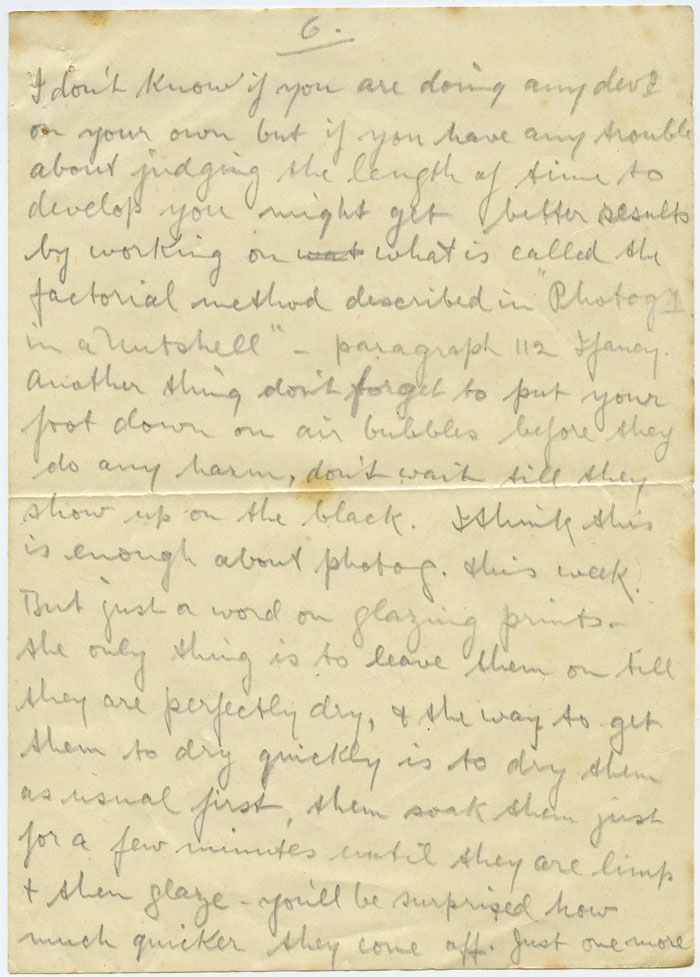 6.
I don't know if you are doing any devg
on your own but if you have any trouble
about judging the length of time to
develop you might get better results
by working on wat what is called the
factorial method described in "Photogy
in a Nutshell" - paragraph 112 I fancy.
Another thing don't forget to put your
foot down on air bubbles before they
do any harm, don't wait till they
show up on the black. I think this
is enough about photog. this week.
But just a word on glazing prints -
the only thing is to leave them on till
they are perfectly dry, & the way to get
them to dry quickly is to dry them
as usual first, them soak them just
for a few minutes until they are limp
& then glaze - you'll be surprised how
much quicker they come off. Just one more